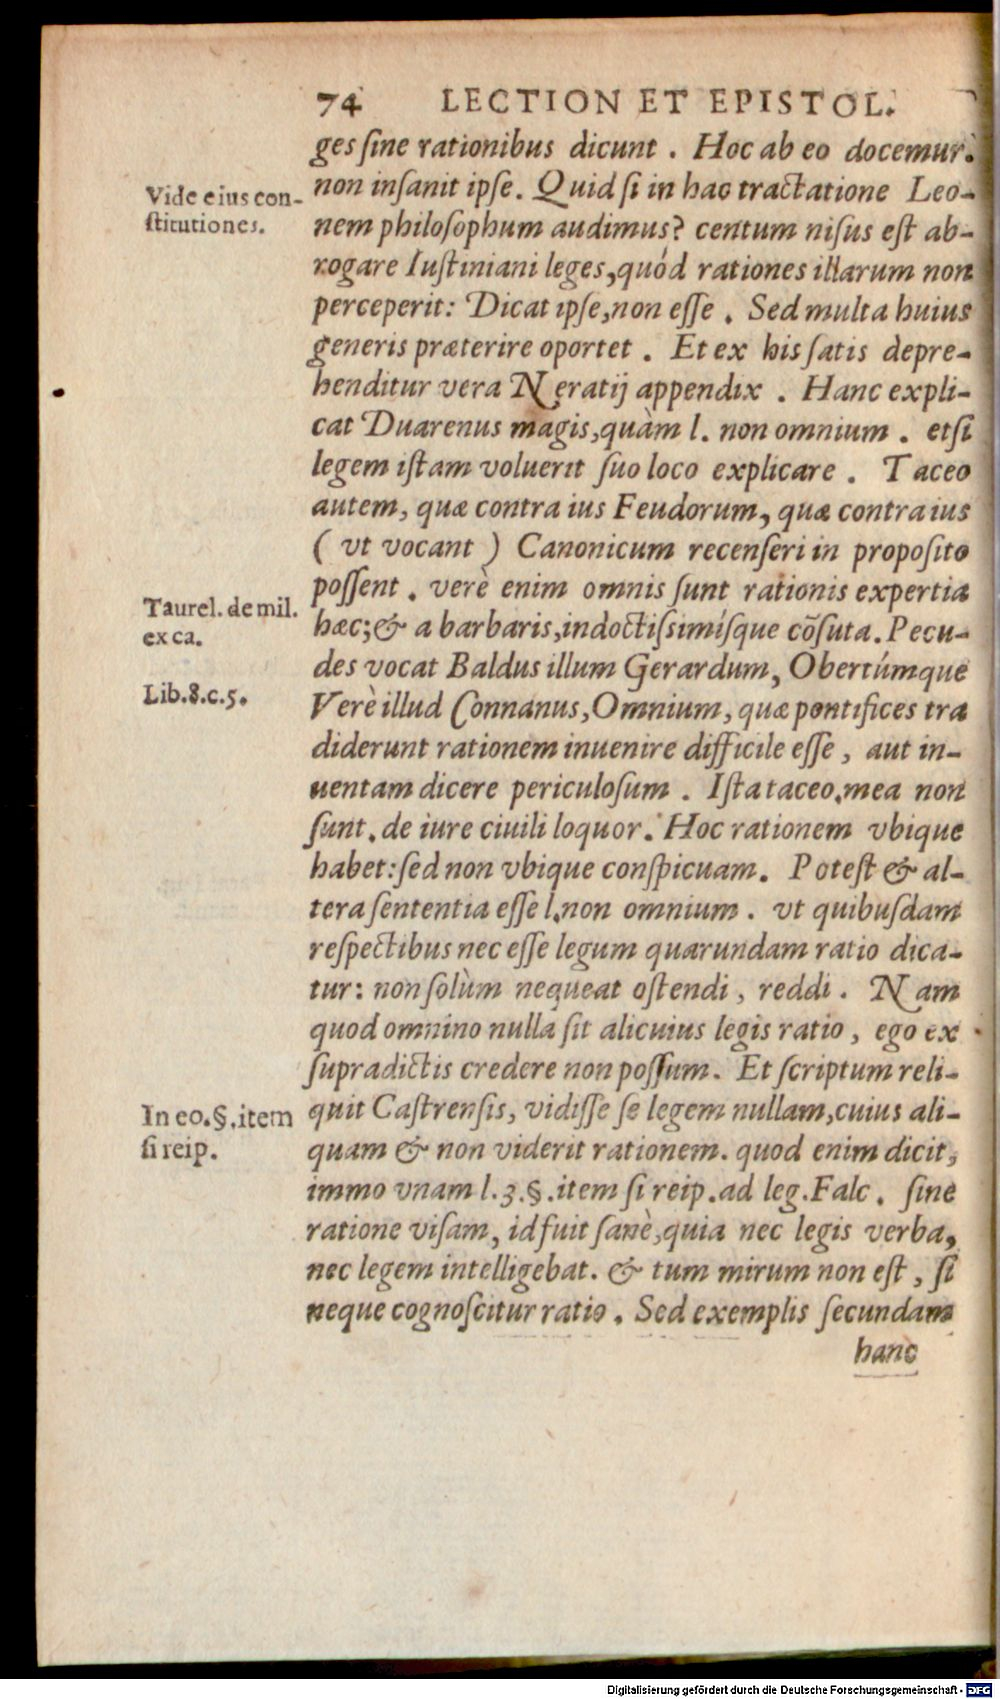 74 LECTION ET EPISTOL.
ges ſine rationibus dicunt . Hoc ab eo docemur.
Vide eius con-
ſtitutiones.
non inſanit ipſe. Quid ſi in hac tractatione Leo-
nem philoſophum audimus? centum niſus eſt ab-
rogare Iuſtiniani leges, quód rationes illarum non
perceperit: Dicat ipſe, non eſſe . Sed multa huius
generis præterire oportet . Et ex his ſatis depre-
henditur vera Neratij appendix . Hanc expli-
cat Duarenus magis, quàm l. non omnium . etſi
legem iſtam voluerit ſuo loco explicare . Taceo
autem, quæ contra ius Feudorum, quæ contra ius
( vt vocant ) Canonicum recenſeri in propoſito
poſſent . verè enim omnis ſunt rationis expertia
Taurel. de mil.
ex ca.
hæc; & a barbaris, indoctiſsimíſque cõſuta. Pecu-
des vocat Baldus illum Gerardum, Obertúmque
Lib.8.c.5.
Verè illud Connanus, Omnium, quæ pontifices tra
diderunt rationem inuenire difficile eſſe , aut in-
uentam dicere periculoſum . Iſta taceo. mea non
ſunt. de iure ciuili loquor. Hoc rationem vbique
habet: ſed non vbique conſpicuam. Poteſt & al-
tera ſententia eſſe l. non omnium . vt quibuſdam
reſpectibus nec eſſe legum quarundam ratio dica-
tur: non ſolùm nequeat oſtendi , reddi . Nam
quod omnino nulla ſit alicuius legis ratio , ego ex
ſupradictis credere non poſſum. Et ſcriptum reli-
In eo.§.item
ſi reip.
quit Caſtrenſis, vidiſſe ſe legem nullam, cuius ali-
quam & non viderit rationem. quod enim dicit,
immo vnam l.3.§.item ſi reip. ad leg. Falc . ſine
ratione viſam, id fuit ſanè, quia nec legis verba,
nec legem intelligebat. & tum mirum non eſt , ſi
neque cognoſcitur ratio . Sed exemplis ſecundam
hanc
Digitalisierung gefördert durch die Deutsche Forschungsgemeinschaft - DFG